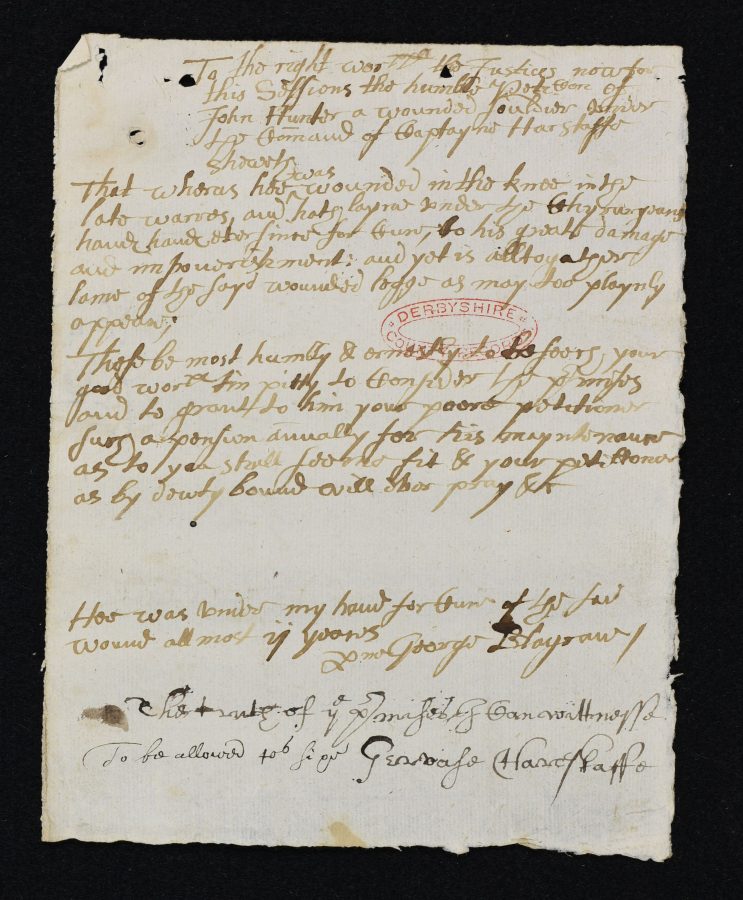 To the right wor:ll the Justices now for
this Sessions the humble Peticon of
John Hunter a wounded souldier under
the Comaund of Captayne Harstaffe
Sheweth
That wheras hee was wounded in the knee in the
late warres, and hath layne under the Chyrurgeans
hand hand ever since for Cure, to his great damage
and impoverishment: and yet is alltogather
lame of the sayd wounded legge as may too playnly
appeare,
DERBYSHIRE
COUNTY RECORDS
These be most humbly & ernestly to beseech, your
good wor:ps in pitty to Consider the pmises
and to graunt to him your poore petitioner
such a pension anually for his mayntenance
as to you shall seeme fit & your petitioner
as by dewty bound will ever pray &c
Hee was under my hand for Cure of the sed
wound allmost ij yeares
p me George Blagrave
The truth of ye pmises I Can wittnesse
To be allowed 40s Gervase Hartstaffe